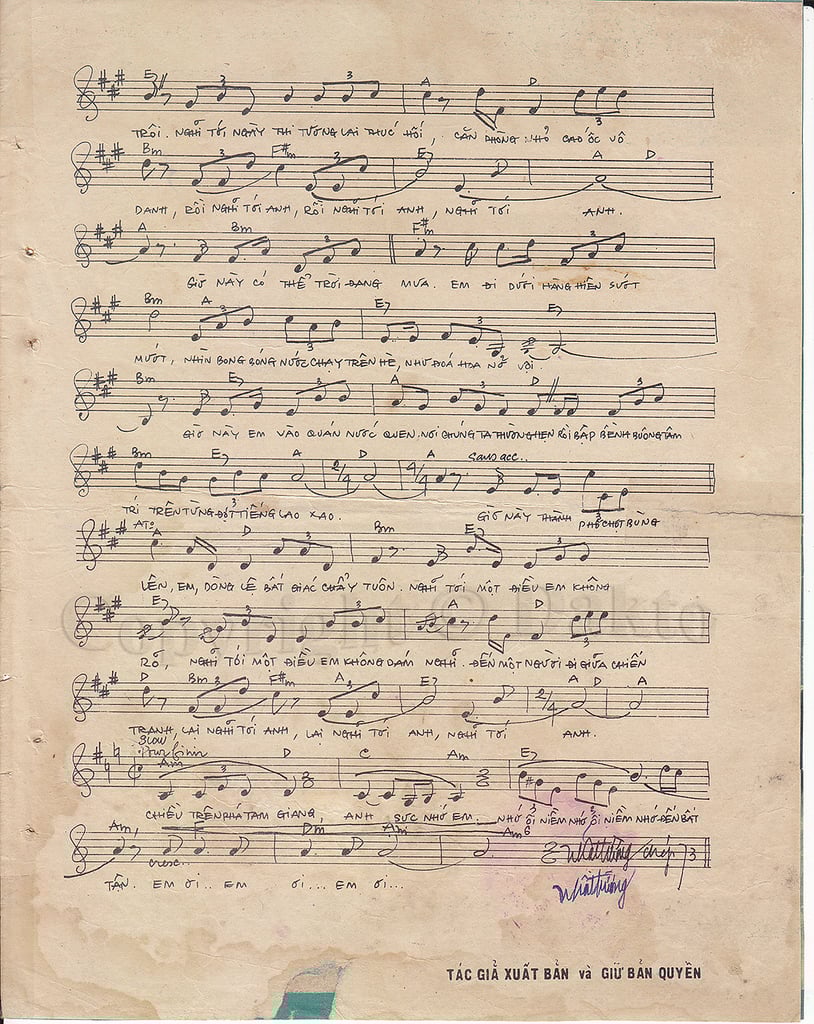 E7 3 3 A D 3
TRÔI. NGHĨ TỚI NGÀY THI TƯƠNG LAI THÚC HỐI, CĂN PHÒNG NHỎ CAO ỐC VÔ
Bm F#m E7 A D
DANH, RỒI NGHĨ TỚI ANH, RỒI NGHĨ TỚI ANH, NGHĨ TỚI ANH.
A Bm F#m
GIỜ NÀY CÓ THỂ TRỜI ĐANG MƯA. EM ĐI DƯỚI HÀNG HIÊN SƯỚT
Bm A E7 E7
MƯỚT, NHÌN BONG BÓNG NƯỚC CHẠY TRÊN HÈ, NHƯ ĐOÁ HOA NỞ VỘI.
Bm E7 A D
GIỜ NÀY EM VÀO QUÁN NƯỚC QUEN. NƠI CHÚNG TA THƯỜNG HẸN RỒI BẬP BỀNH BUÔNG TÂM
Bm E7 A 2/4 D 4/4 A sans acc..
TRÍ TRÊN TỪNG ĐỢT TIẾNG LAO XAO. GIỜ NÀY THÀNH PHỐ CHỢT BÙNG
ATo D Bm E7
LÊN, EM, DÒNG LỆ BẤT GIÁC CHẢY TUÔN. NGHĨ TỚI MỘT ĐIỀU EM KHÔNG
Copyright © Dakto
E7 A D
RÕ, NGHĨ TỚI MỘT ĐIỀU EM KHÔNG DÁM NGHĨ. ĐẾN MỘT NGƯỜI ĐI GIỮA CHIẾN
D Bm F#m E7 2/4 A D A
TRANH, LẠI NGHĨ TỚI ANH, LẠI NGHĨ TỚI ANH, NGHĨ TỚI ANH.
Slow
Pour finir
Am D C Am E7
CHIỀU TRÊN PHÁ TAM GIANG, ANH SỰC NHỚ EM. NHỚ ÔI NIỀM NHỚ ÔI NIỀM NHỚ ĐẾN BẤT
Am, E7 Dm Am Am6
cresc..
TẬN. EM ƠI.. EM ƠI... EM ƠI...
Nhất Tường chép 73
Nhất Tường
TÁC GIẢ XUẤT BẢN và GIỮ BẢN QUYỀN